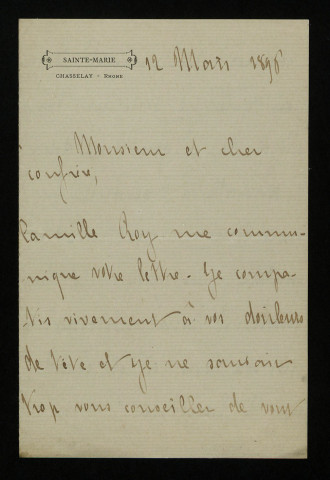 SAINTE-MARIE
CHASSELAY - RHONE
12 Mars 1896
Monsieur et cher
confrère,
Camille Roy me commu-
nique votre lettre. Je compa-
tis vivement à vos douleurs
de tête et je ne saurais
trop vous conseiller de vous